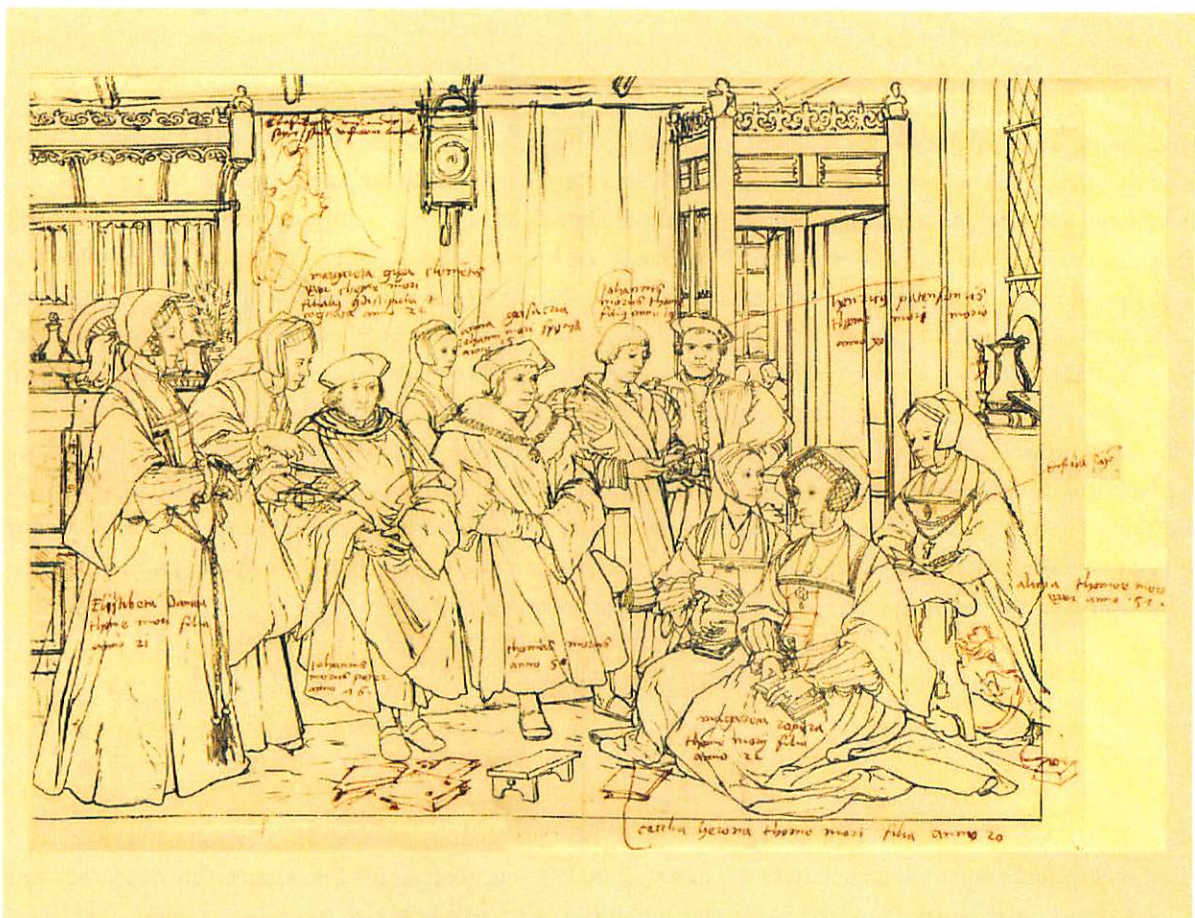 margareta giga clementis
uxor thome mori
filiabus condiscipula et
cognata anno 22
anna grisacria
Johanni mori sponsa
anno 15
Johannes
morus thome
filius anno 19
henricus patensonus
thome mori morio
anno 40
Elisabeta Damea
thome mori filia
anno 21
Johannes
morus pater
anno 76
thomas morus
anno 50
alicia thome mori
uxor anno 57.
margareta ropera
thome mori filia
anno 22
cecilia herona thome mori filia anno 20